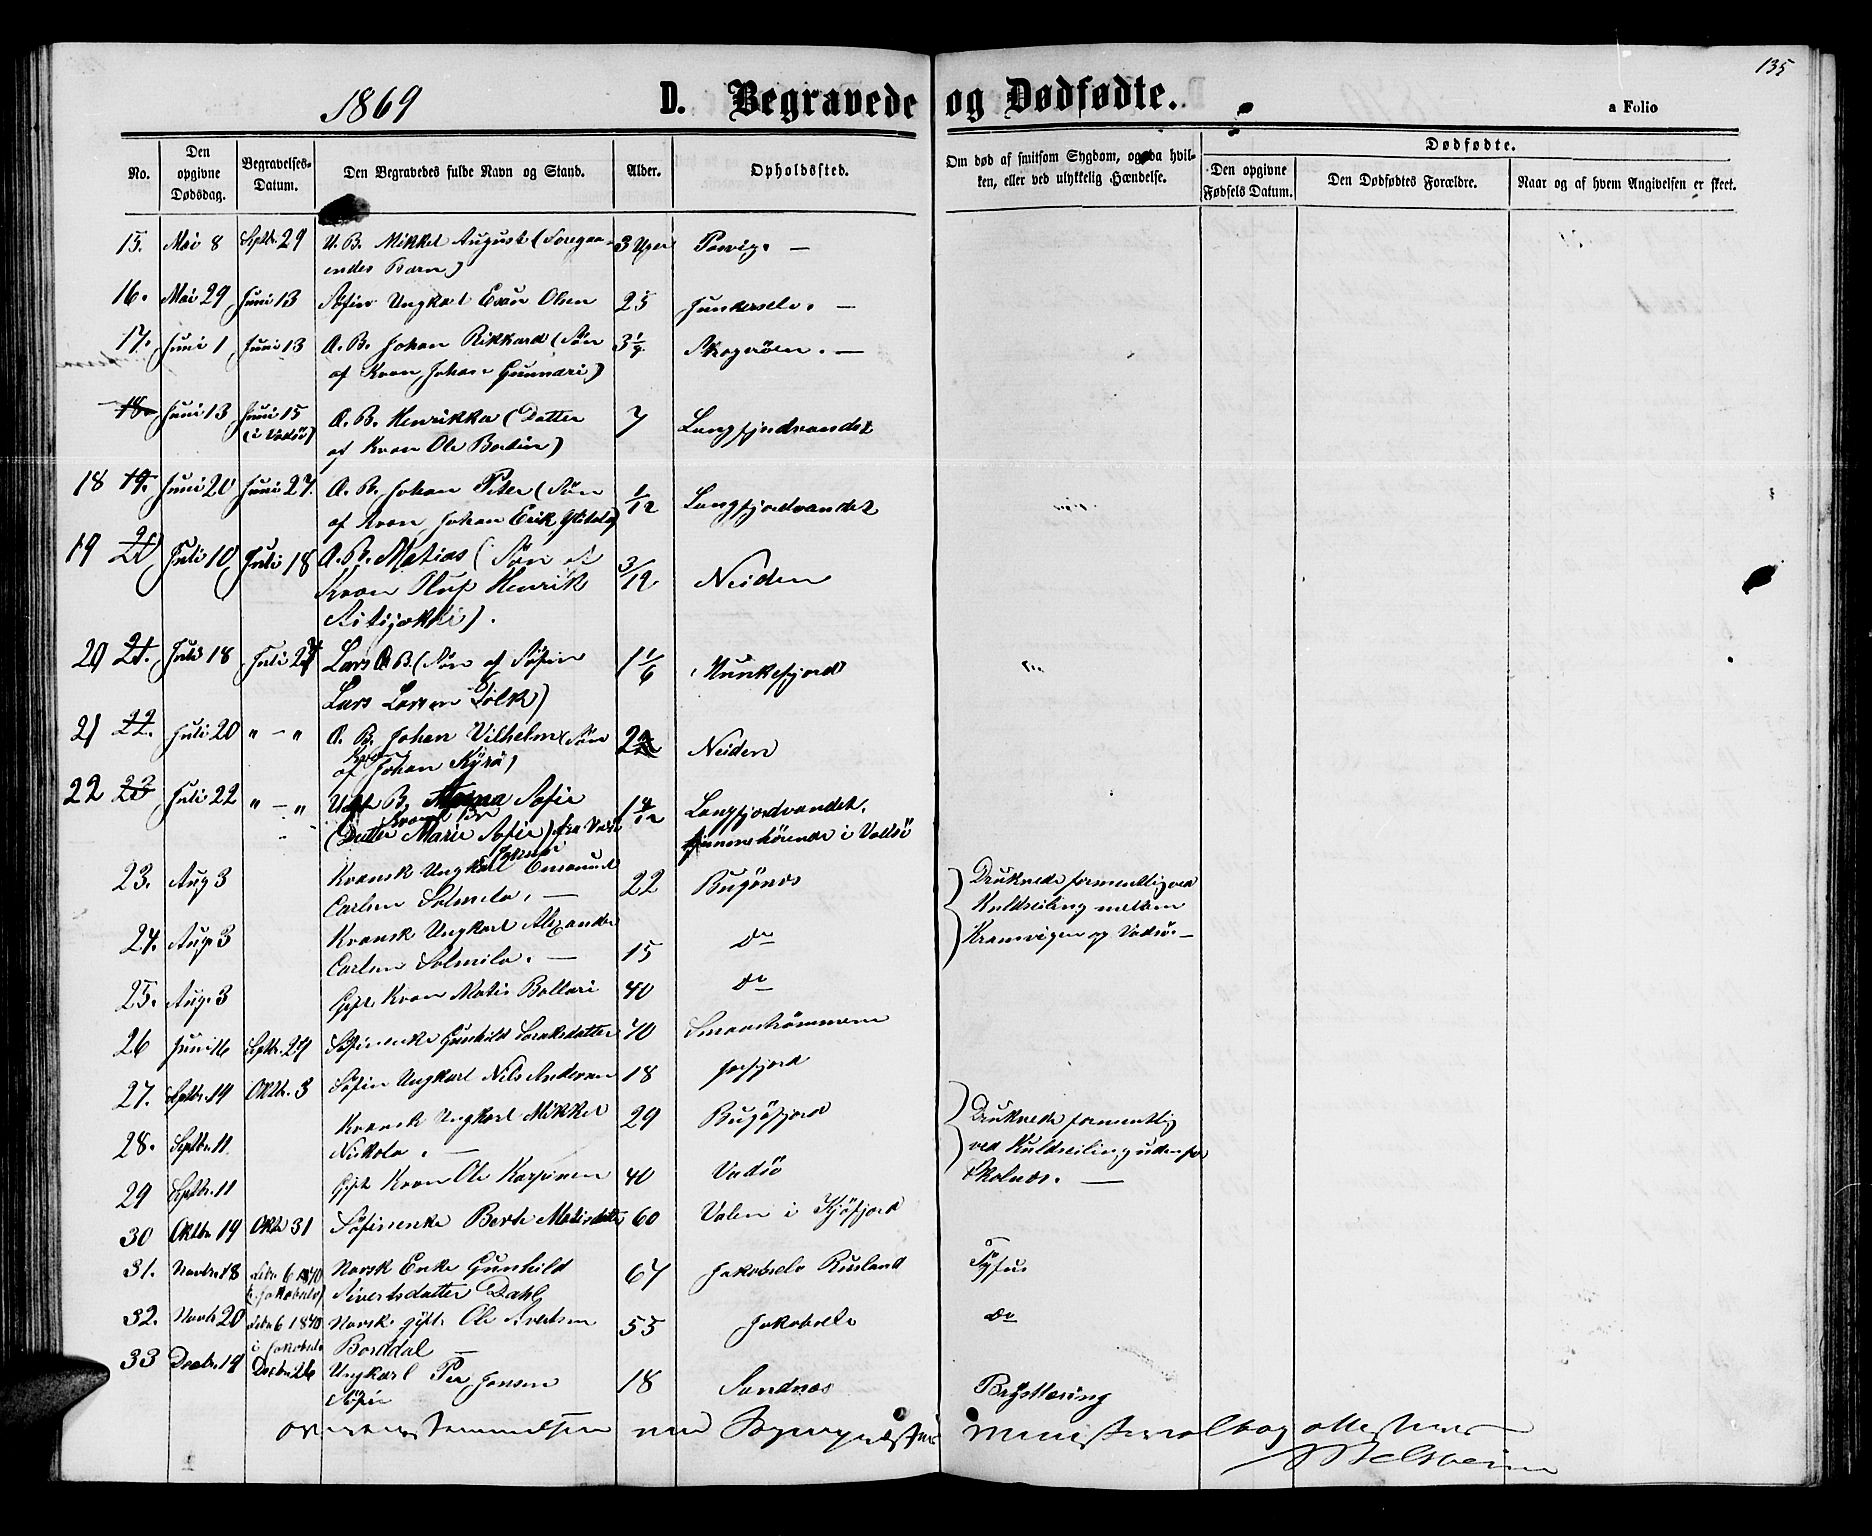 135
1869 D. Begravede og Dødfødte. a Folio
No. Den opgivne Dødsdag. Begravelses-Datum. Den Begravedes fulde Navn og Stand. Alder. Opholdssted. Om død af smitsom Sygdom, og da hvilken, eller ved ulykkelig Hændelse. Dødfødte. Den opgivne Fødsels Datum. Den Dødfødtes Forældre. Naar og af hvem Angivelsen er skeet.
15. Mai 8 Septbr. 29 U. B. Mikkel August (Foregaa- 3 Uger Pasvig. —
endes Barn)
16. Mai 29 Juni 13 Søfin Ungkarl Evan Olsen 25 Junkerselv. —
17. Juni 1 Juni 13 Æ. B. Johan Rikkard (Søn 3½ Skogerøen. —
af Kvæn Johan Gunnari)
18. Juni 13 Juni 15 Æ. B. Henrikka (Datter 7 Langfjordvandet
(i Vadsø) af Kvæn Ole Bordin)
18 19. Juni 20 Juni 27. Æ. B. Johan Peter (Søn 1/12 Langfjordvandet
af Kvæn Johan Erik
19 20 Juli 10 Juli 18 Æ. B. Matias (Søn af 3/12 Neiden
Kvæn Oluf Henrik
20 21. Juli 18 Juli Lars Æ B. (Søn af Søfin 1 1/6 Munkefjord
Lars Larsen
21 22. Juli 20 " — " Æ. B. Johan Vilhelm (Søn 2 Neiden
af Kvæn Johan Kyrö)
22 23 Juli 22 " — " B. Sofie 1 Langfjordvandet,
(Datter Marie Sofie) fra Vadsø hjemmehørende i Vadsø
23. Aug 3 Kvænsk Ungkarl Emanuel 22 Bugønes Druknede formentlig ved
Carlsen Solmila. —
24. Aug 3 Kvænsk Ungkarl Alexander 15 Do Kuldseiling mellem
Carlsen Solmila. — Kramvigen og Vadsø. —
25. Aug. 3 Gift Kvæn Matis Ballari 40 Do
26 Juni 16 Septbr. 29 Søfinenke Gunhild 70 Smaastrømmene
27. Septbr. 19 Oktbr. 3 Søfin Ungkarl Nils Andersen 18 Jarfjord
28. Septbr. 11 Kvænsk Ungkarl Mikkel 29 Bugøfjord Druknede formentlig
Niskala. — ved Kuldseiling udenfor
29 Septbr. 11 Gift Kvæn Ole Karpinen 40 Vadsø Skolnæs. —
30 Oktbr. 19 Oktbr 31 Søfinenke Berit Matisdatter 60 Valen i Kjøfjord
31. Novbr. 18 Febr. 6 1870 Norsk Enke Gunhild 67 Jakobselv Rusland Tyfus
(i Jakobselv) Sivertsdatter Dahl
32. Novbr 20 Febr 6 1870 Norsk gift Ole 55 Jakobselv Do
i Jakobselv Borddal
33 Decbr. 19 Decbr. 26 Ungkarl Per Jonsen 18 Sandnæs Brystlæring
Søfin
Overensstemmelsen med Sognepræstens Ministerialbog attesteres